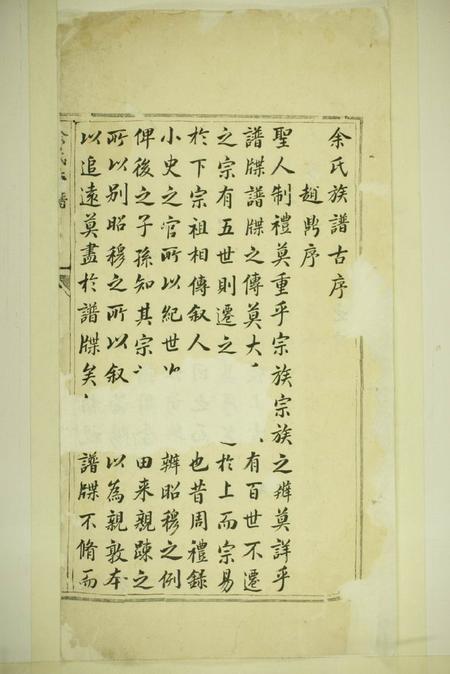 余氏族譜古序
趙鼎序
聖人制禮莫重乎宗族宗族之辨莫詳乎
譜牒譜牒之傳莫大 有百世不遷
之宗有五世則遷之 於上而宗易
於下宗祖相傳叙人 也昔周禮録
小史之官所以紀世 辨昭穆之例
俾後之子孫知其宗 田来親踈之
所以别昭穆之所以叙 以為親敦本
以追遠莫盡於譜牒矣 譜牒不脩而